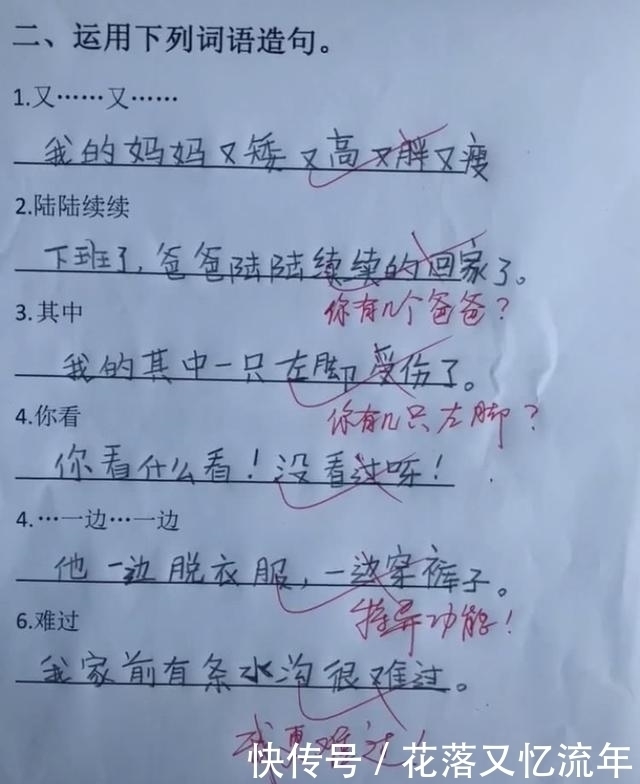 二、运用下列词语造句。
1.又……又……
我的妈妈又矮又高又胖又瘦
2.陆陆续续
下班了,爸爸陆陆续续的回家了。
你有几个爸爸?
3.其中
我的其中一只左脚受伤了。
你有几只左脚?
4.你看
你看什么看!没看过呀!
4.…一边…一边
他一边脱衣服,一边穿裤子。
特异功能!
6.难过
我家前有条水沟很难过。
我更难过!
快传号 / 花落又忆流年